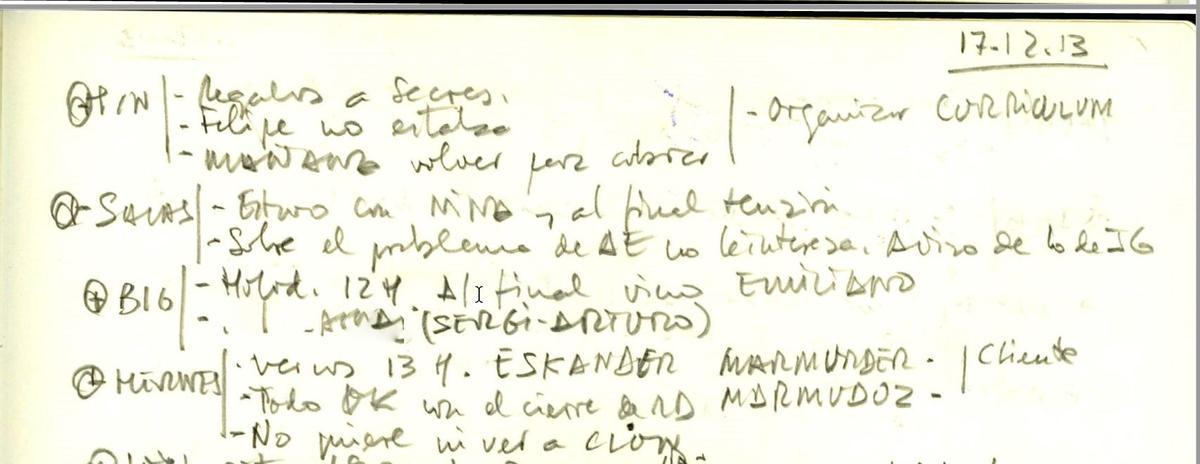 17-12.13
PIN - Regalos a Secres. - Organizar CURRICULUM
- Felipe no estaba
- MAÑANA volver para cobrar
SALAS - Estuvo con NINA, al final tensión
- Sobre el problema de AE no le interesa. Aviso de lo de IG
BIG - 12 H. Al final vino EMILIANO
- (SERGI-ARTURO)
- Vernos 13 H. ESKANDER MARMURDER - Cliente
- Todo OK con el cierre de RD MARMUDOZ -
- No quiere ni ver a